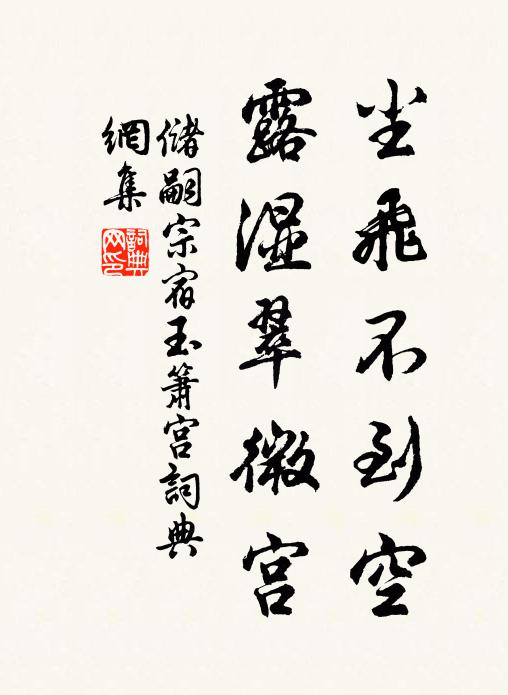 尘飛不到空
露湿翠微宫
儲嗣宗宿玉箫宫詞典
網集
詞典网印